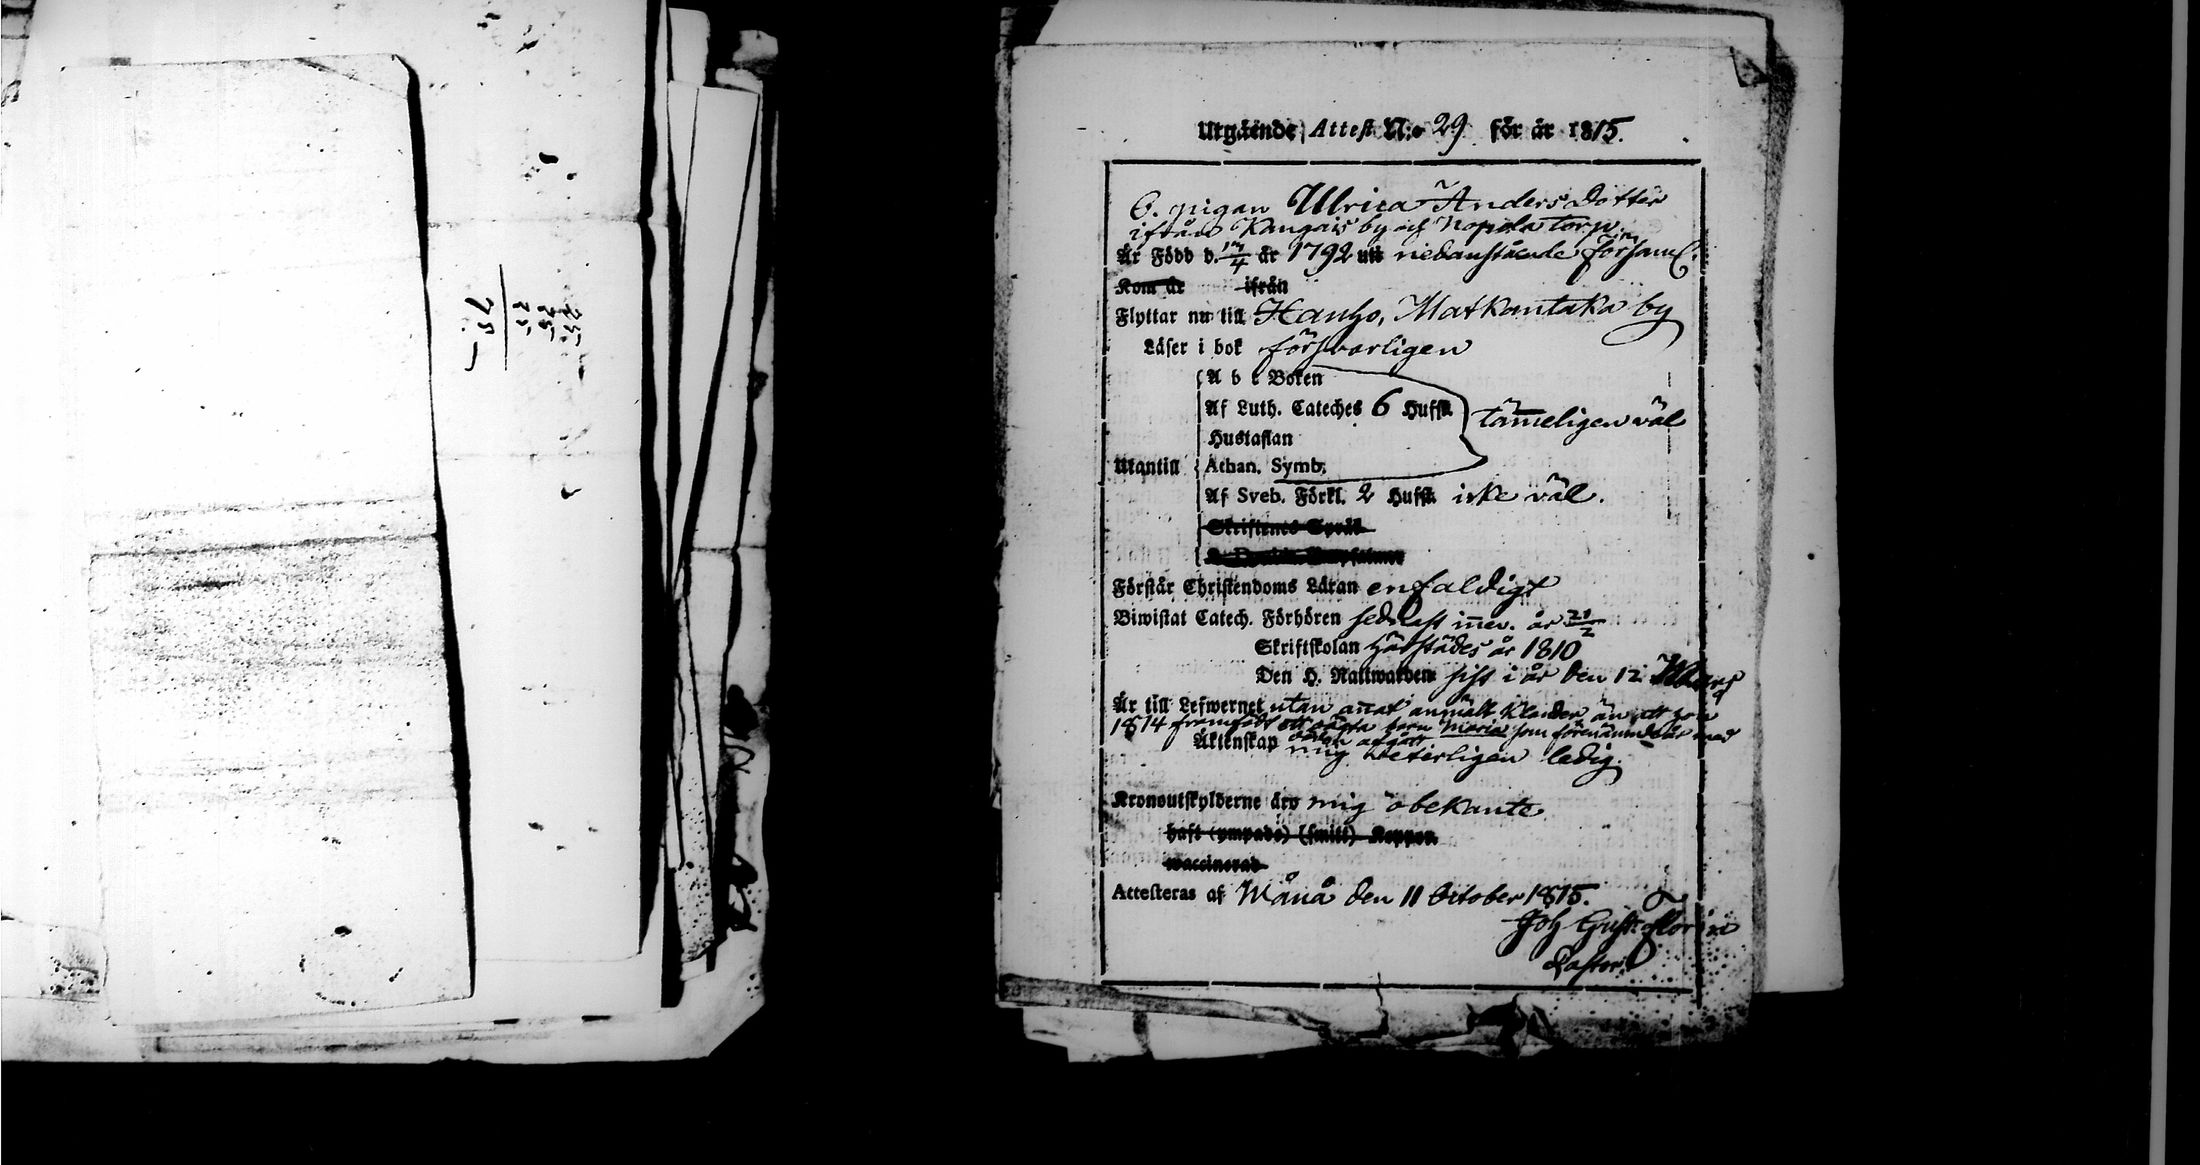 25
25
25
75
Utgående Attest N:o 29 för år 1815.
O. pigan Ulrica Anders Dotter
ifrån Kangais by och Nopola torp.
Är Född d. 17/4 år 1792 uti nedanstående församl.
Kom år ifrån
Flyttar nu till Hauho, Matkantaka by
Läser i bok försvarligen
A b c Boken
Af Luth. Cateches 6 Hufst. tämeligen väl
Hustaflan
Utantill Athan. Symb.
Af Sveb. Förkl. 2 Hufst. icke väl.
Skriftenes Språk
Förstår Christendoms Läran enfaldigt
Biwistat Catech. Förhören sednast inev. år 21/2
Skriftskolan härstädes år 1810
Den H. Nattwarden sist i år den 12
Är till Lefwernet utan anat anmält klander än att hon
1814 framfödt ett oägta barn Maria som förenämnde år med
Äktenskap mig veterligen ledig.
Kronoutskylderne äro mig obekante
haft (ympade) (smitt) Koppor
vaccinerad
Attesteras af Månå den 11 October 1815.
Joh Gust.
Pastor